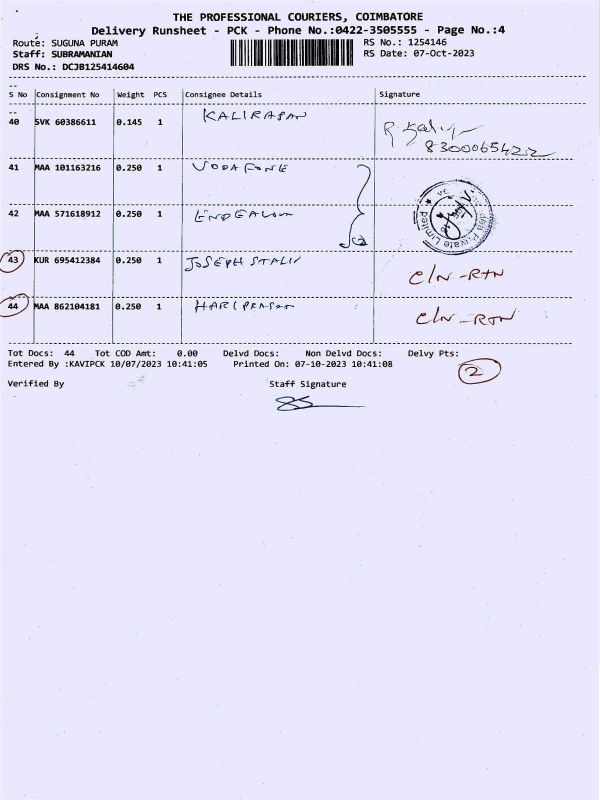 THE PROFESSIONAL COURIERS, COIMBATORE
Delivery Runsheet - PCK - Phone No.:0422-3505555 - Page No.:4
Route: SUGUNA PURAM RS No.: 1254146
Staff: SUBRAMANIAN RS Date: 07-Oct-2023
DRS No.: DCJB125414604
S No Consignment No Weight PCS Consignee Details Signature
40 SVK 60386611 0.145 1 KALIRASAN
8300065422
41 MAA 101163216 0.250 1 VODAFONE
42 MAA 571618912 0.250 1
Private Limited
43 KUR 695412384 0.250 1 JOSEPH STALIN CLN-RTN
44 MAA 862104181 0.250 1 HARIPRASAN CLN-RTN
Tot Docs: 44 Tot COD Amt: 0.00 Delvd Docs: Non Delvd Docs: Delvy Pts:
Entered By :KAVIPCK 10/07/2023 10:41:05 Printed On: 07-10-2023 10:41:08
2
Verified By Staff Signature